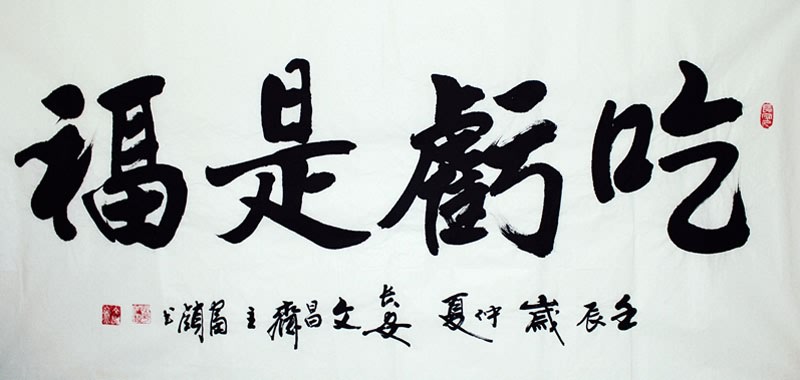 吃虧是福
壬辰歲仲夏長安文昌齋主富